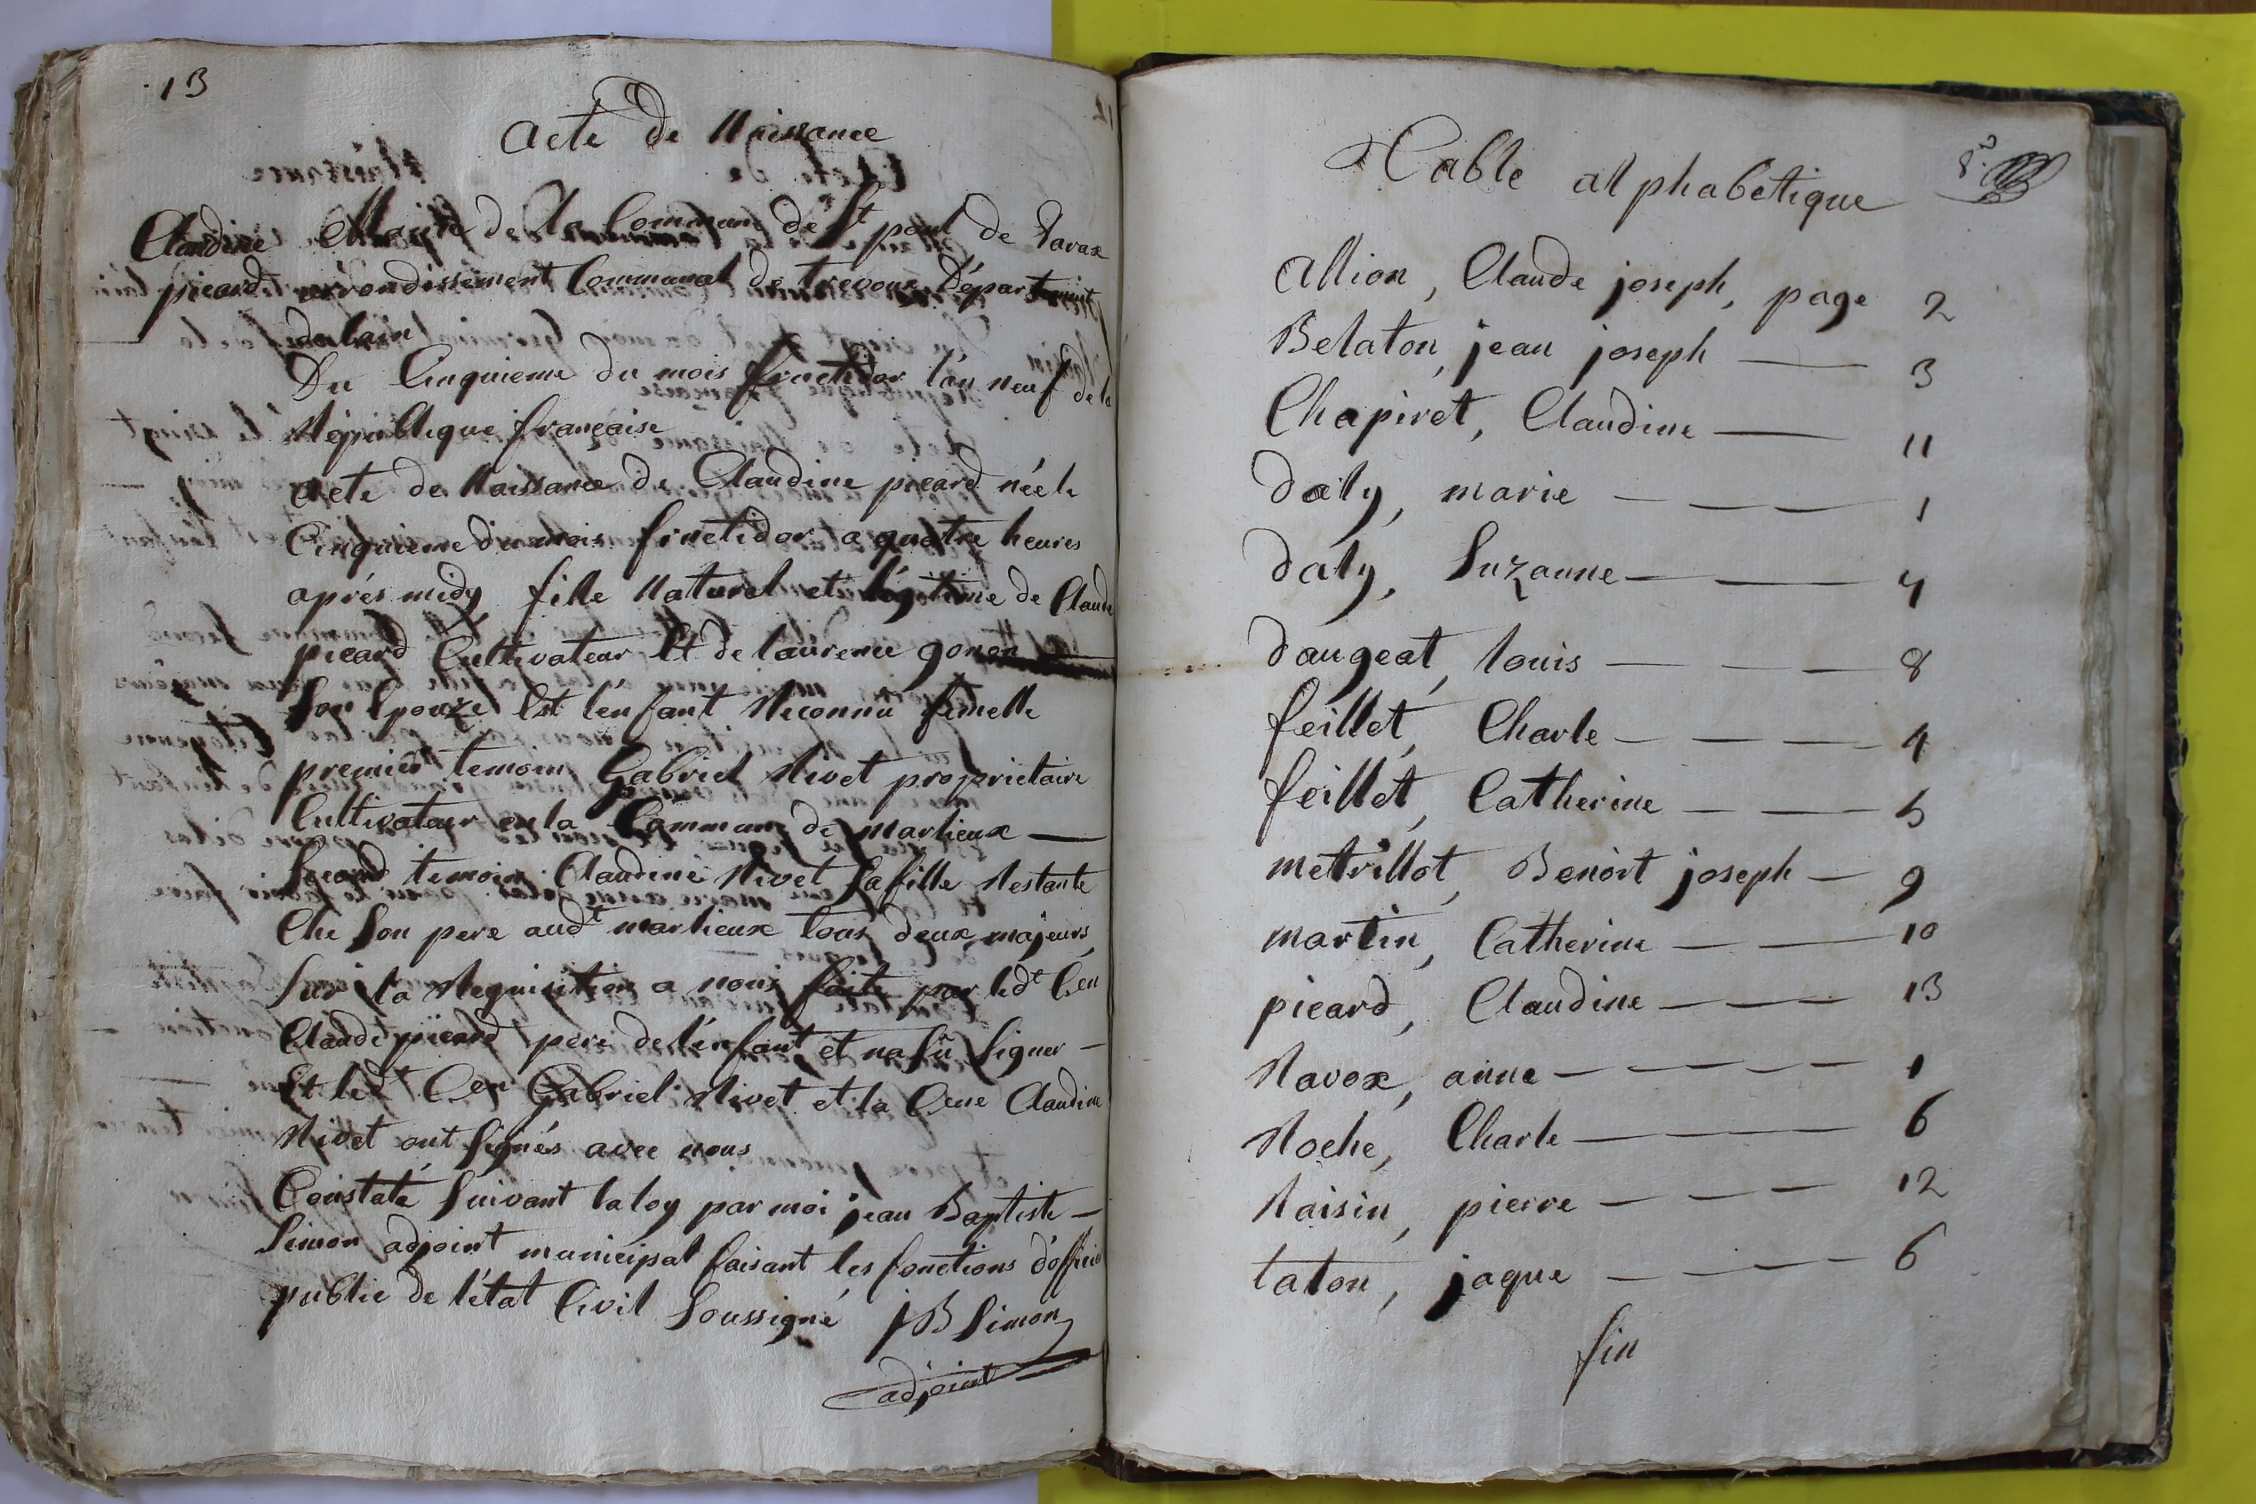 13
acte de Naissance
Claudine
picard
Mairie de la Commune de St paul de Varax
arrondissement Communal de trevoux Département
de lain
Du Cinquieme du mois fructidor l'an neuf de la
République française
acte de Naissance de Claudine picard née le
Cinquieme du mois fructidor a quatre heures
aprés midy fille Naturel et légitime de Claude
picard Cultivateur Et de laurence gonon
Son Epouze Est l'enfant Reconnu femelle
premier temoin Gabriel Nivet proprietaire
Cultivateur en la Commune de marlieux
Second temoin Claudine Nivet Sa fille Restante
Che Son pere aud.t marlieux tous deux majeurs
Sur la Requisition a nous faite par led.t Cen
Claude picard pere de l'enfant et na Sû Signer
Et led.t Cen Gabriel Nivet et la Cene Claudine
Nivet ont Signés avec nous
Constaté Suivant la loy par moi jean Baptiste
Simon adjoint municipal faisant les fonctions d'officier
public de l'état Civil Soussigné JB Simon
adjoint
Table alphabétique
Allion, Claude joseph, page 2
Belaton, jean joseph — 3
Chapiret, Claudine — 11
daly, marie — — — 1
daly, Suzanne — — 4
daugeat, louis — — — 8
feillet, Charle — — — 4
feillet, Catherine — — 5
metrillot, Benoit joseph — 9
martin, Catherine — — 10
picard, Claudine — — — 13
Ravox, anne — — — — 1
Roche, Charle — — — — 6
Raisin, pierre — — — 12
taton, jaque — — — — 6
fin